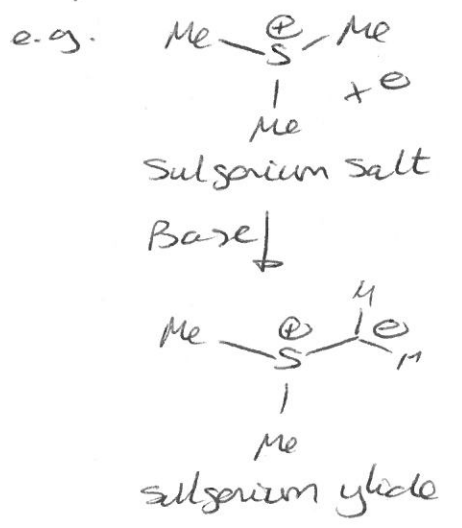 e.g. Me ⊕ Me
S
X ⊖
Me
Sulfonium Salt
Base
H
Me ⊕ ⊖
S H
Me
sulfonium ylide